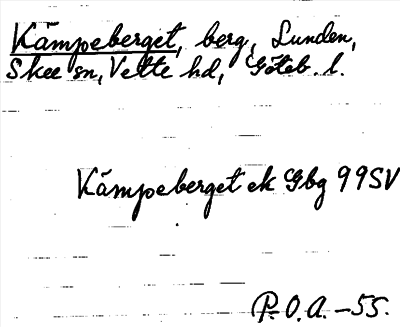 Kämpeberget, berg, Lunden,
Skee sn, Vette hd, Göteb. l.
Kämpeberget ek Gbg 99SV
P.O.A. -55.